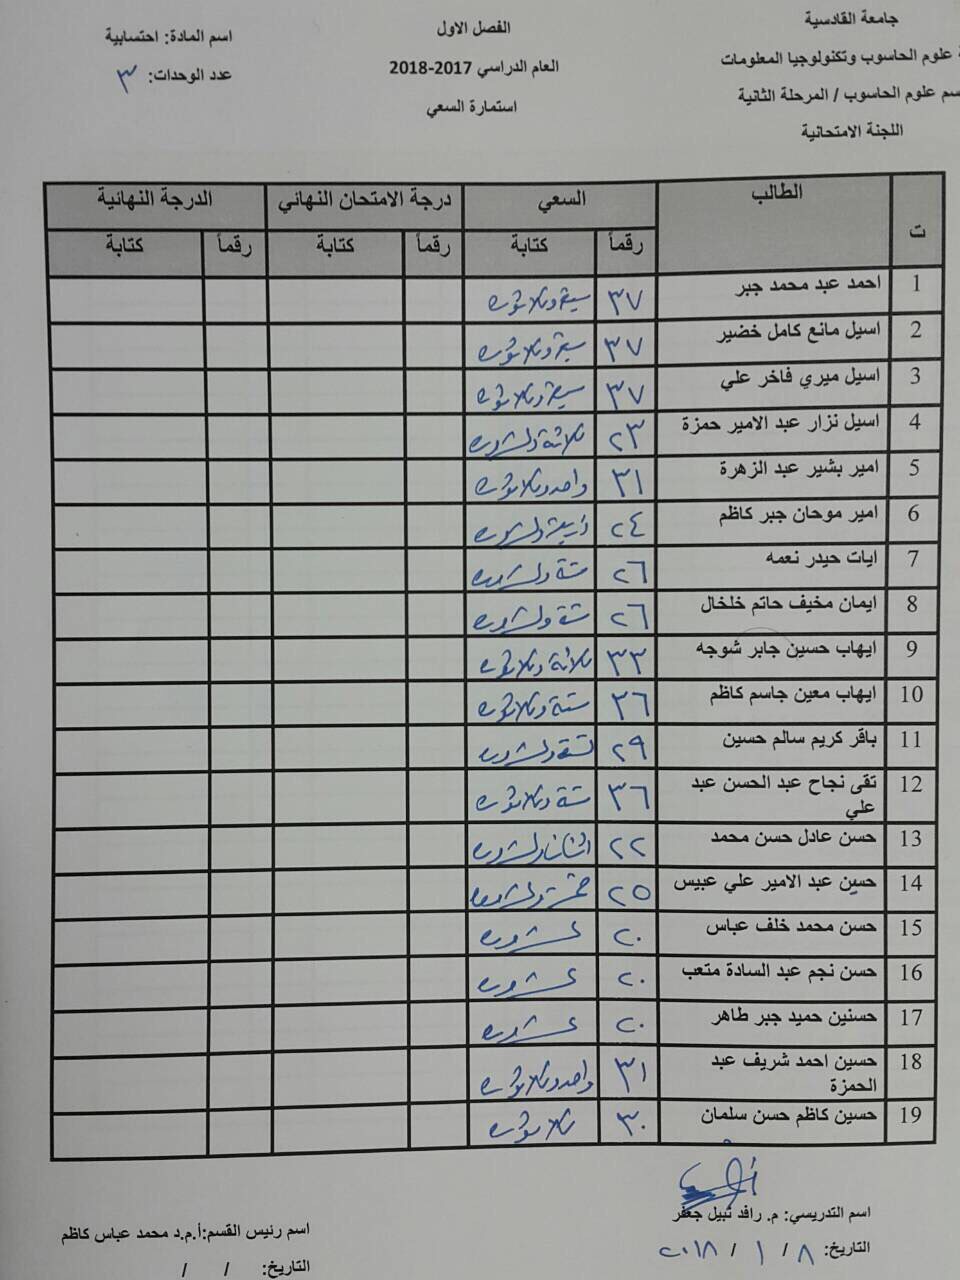 جامعة القادسية
ة علوم الحاسوب وتكنولوجيا المعلومات
سم علوم الحاسوب / المرحلة الثانية
اللجنة الامتحانية
الفصل الاول
العام الدراسي 2017-2018
استمارة السعي
اسم المادة: احتسابية
عدد الوحدات: ٣
ت الطالب السعي درجة الامتحان النهائي الدرجة النهائية
رقماً كتابة رقماً كتابة رقماً كتابة
1 احمد عبد محمد جبر ٣٧ سبعة وثلاثون
2 اسيل مانع كامل خضير ٣٧ سبعة وثلاثون
3 اسيل ميري فاخر علي ٣٧ سبعة وثلاثون
4 اسيل نزار عبد الامير حمزة ٢٣ ثلاثة وعشرون
5 امير بشير عبد الزهرة ٣١ واحد وثلاثون
6 امير موحان جبر كاظم ٢٤ اربعة وعشرون
7 ايات حيدر نعمه ٢٦ ستة وعشرون
8 ايمان مخيف حاتم خلخال ٢٦ ستة وعشرون
9 ايهاب حسين جابر شوجه ٣٣ ثلاثة وثلاثون
10 ايهاب معين جاسم كاظم ٣٦ ستة وثلاثون
11 باقر كريم سالم حسين ٢٩ تسعة وعشرون
12 تقى نجاح عبد الحسن عبد علي ٣٦ ستة وثلاثون
13 حسن عادل حسن محمد ٢٢ اثنان وعشرون
14 حسين عبد الامير علي عبيس ٢٥ خمسة وعشرون
15 حسن محمد خلف عباس ٢٠ عشرون
16 حسن نجم عبد السادة متعب ٢٠ عشرون
17 حسنين حميد جبر طاهر ٢٠ عشرون
18 حسين احمد شريف عبد الحمزة ٣١ واحد وثلاثون
19 حسين كاظم حسن سلمان ٣٠ ثلاثون
اسم التدريسي: م. رافد نبيل جعفر
التاريخ: ٨ / ١ / ٢٠١٨
اسم رئيس القسم:أ.م.د محمد عباس كاظم
التاريخ: / /